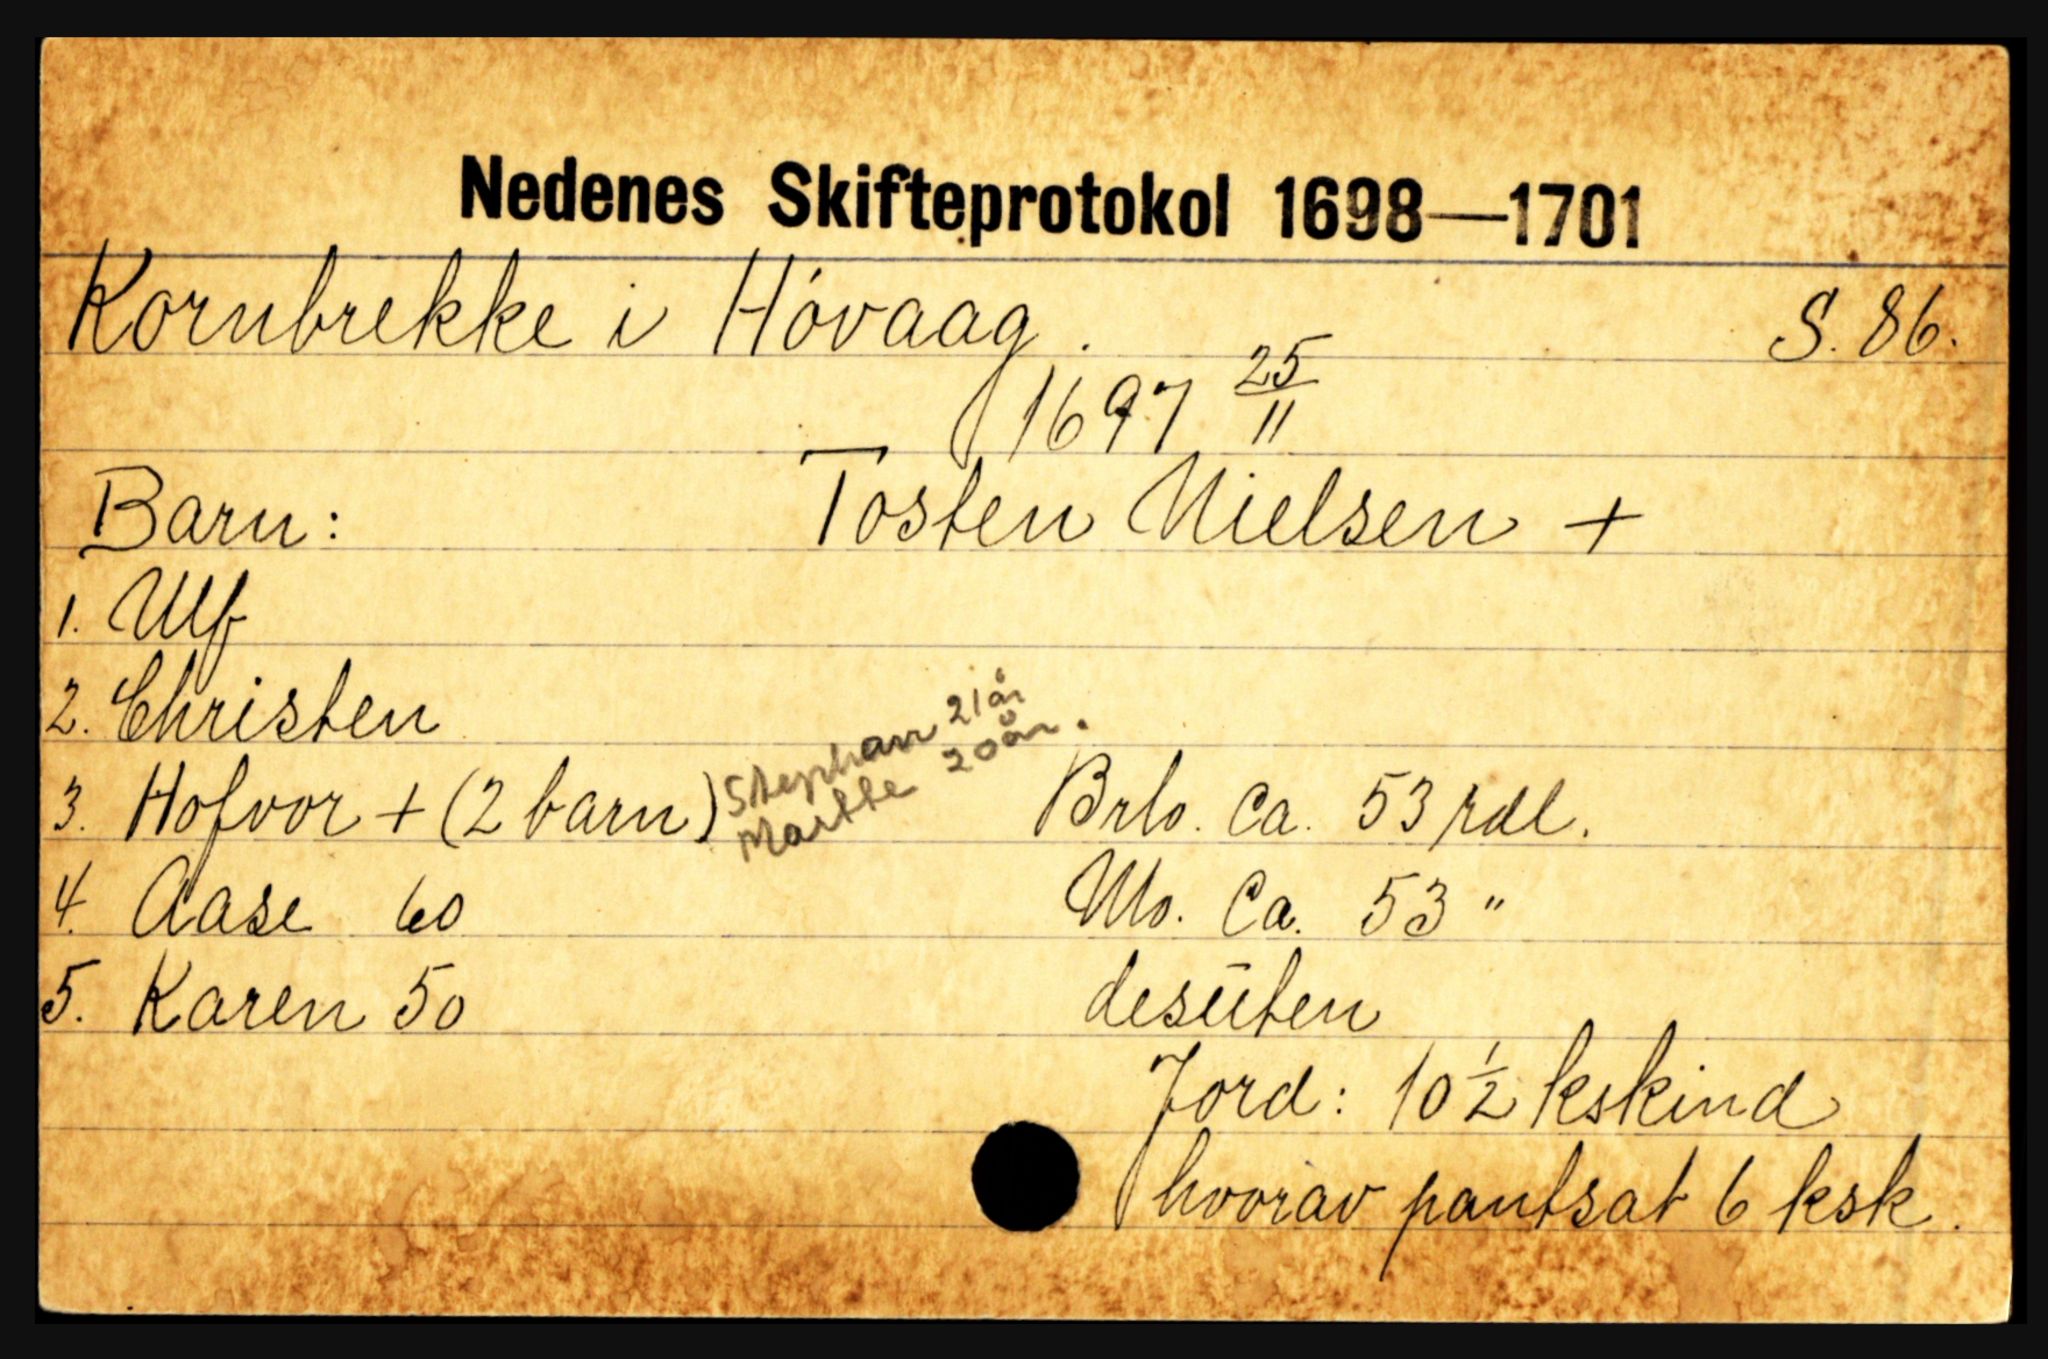 Nedenes Skifteprotokol 1698—1701
Kornbrekke i Hóvaag. S. 86.
1697 25/11
Barn: Tosten Nielsen +
1. Ulf
2. Christen
3. Hofvor + (2 barn) Stephan 21 år
Marthe 20 år.
Brlo. Ca. 53 rdl.
4. Aase 60 Mo. Ca. 53 "
5. Karen 50 desūten
Jord: 10 ½ kskind
hvorav pantsat 6 ksk.